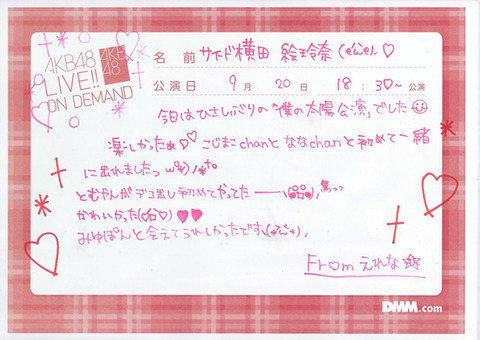 AKB48
LIVE!!
ON DEMAND
AKB
48
名 前 サイド横田 絵玲奈 ♡
公演日 9月 20日 18:30~公演
今日はひさしぶりの「僕の太陽公演」でした
楽しかったぁ♡♡ こじまこchanとななchanと初めて一緒
に出れましたっ
ともやんがデコ出し初めてやってたーー
かわいかった ♥♥
みゆぽんと会えてうれしかったです
From えれな
DMM.com